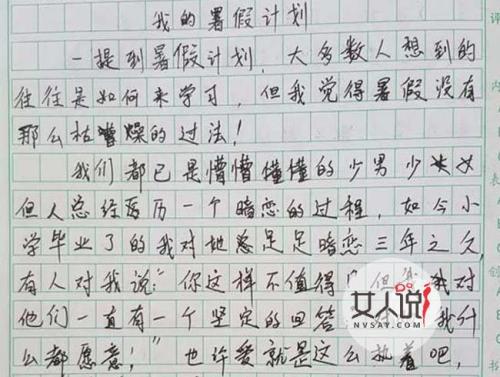 我的暑假计划
一提到暑假计划,大多数人想到的
往往是如何来学习,但我觉得暑假没有
那么枯燥的过法!
我们都已是懵懵懂懂的少男少女
但人总经历一个暗恋的过程,如今小
学毕业了的我对她足足暗恋三年之久
有人对我说:“你这样不值得 但 我对
他们一直有一个坚定的回答 我什
么都愿意!”也许爱就是这么执着吧,
女人说
NVSAY.COM
评
内
表
创